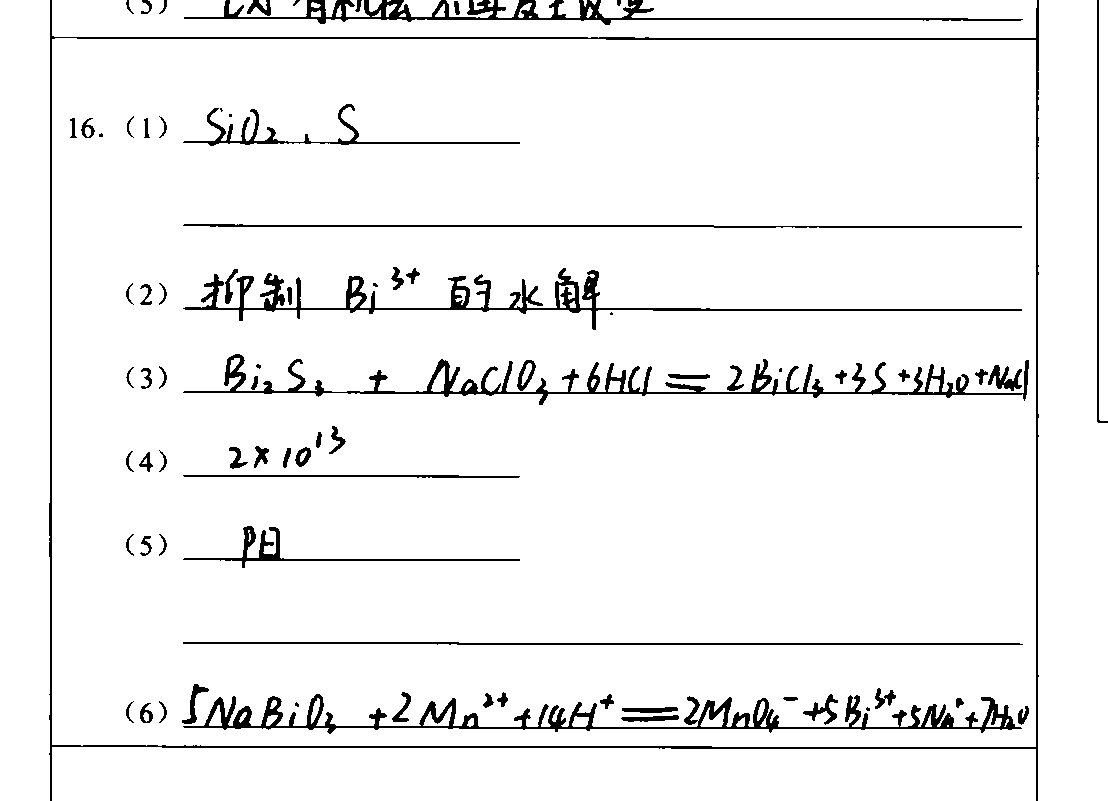 16. (1) SiO₂、S
(2) 抑制 Bi³⁺ 的水解.
(3) Bi₂S₃ + NaClO₃+6HCl = 2BiCl₃+3S+3H₂O+NaCl
(4) 2×10¹³
(5) 阳
(6) 5NaBiO₃ +2Mn²⁺+14H⁺=2MnO₄⁻+5Bi³⁺+5Na⁺+7H₂O